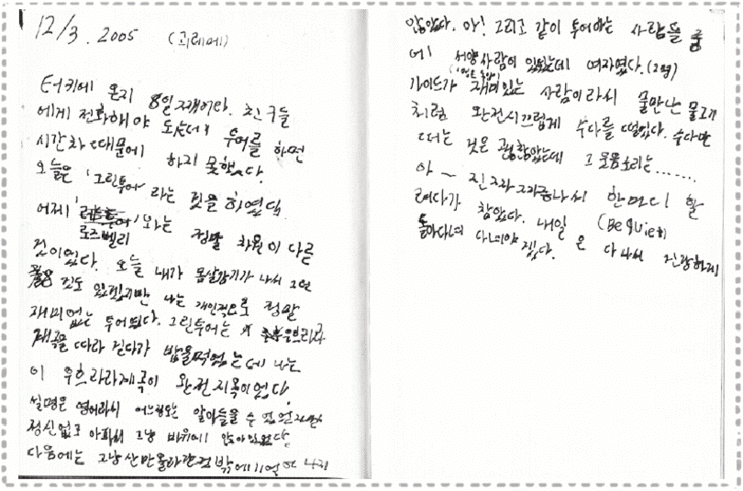 12/3. 2005 (괴레메)
터키에 온지 8일 째이다. 친구들
에게 전화해야 되는데 투어를 하면
시간차 때문에 하지 못했다.
오늘은 '그린투어' 라는 것을 하였다.
어제 '로즈벨리'와는 정말 차원이 다른
것이었다. 오늘 내가 몸살감기가 나서 그런
것도 있겠지만 나는 개인적으로 정말
재미없는 투어였다. 그린투어는
계곡을 따라 걷다가 밥을먹었는데 나는
이 우흐라라계곡이 완전지옥이었다.
설명은 영어라서 어느정도는 알아들을 수 있었지만
정신없고 아파서 그냥 바위에 앉아있었다.
다음에는 그냥 산만 올라간것 밖에 기억이 나지
않았다. 아! 그리고 같이 투어하는 사람들 중
에 서양사람이 있었는데 여자였다. (2명)
가이드가 재미있는 사람이라서 물만난 물고기
처럼 완전시끄럽게 수다를 떨었다. 수다만
떠는 것은 괜찮았는데 그 웃음소리는.......
아~ 진짜 짜증나서 한마디 할
려다가 참았다. (Be quiet)
내일은 다 나아서 건강하게
돌아다녀야겠다.